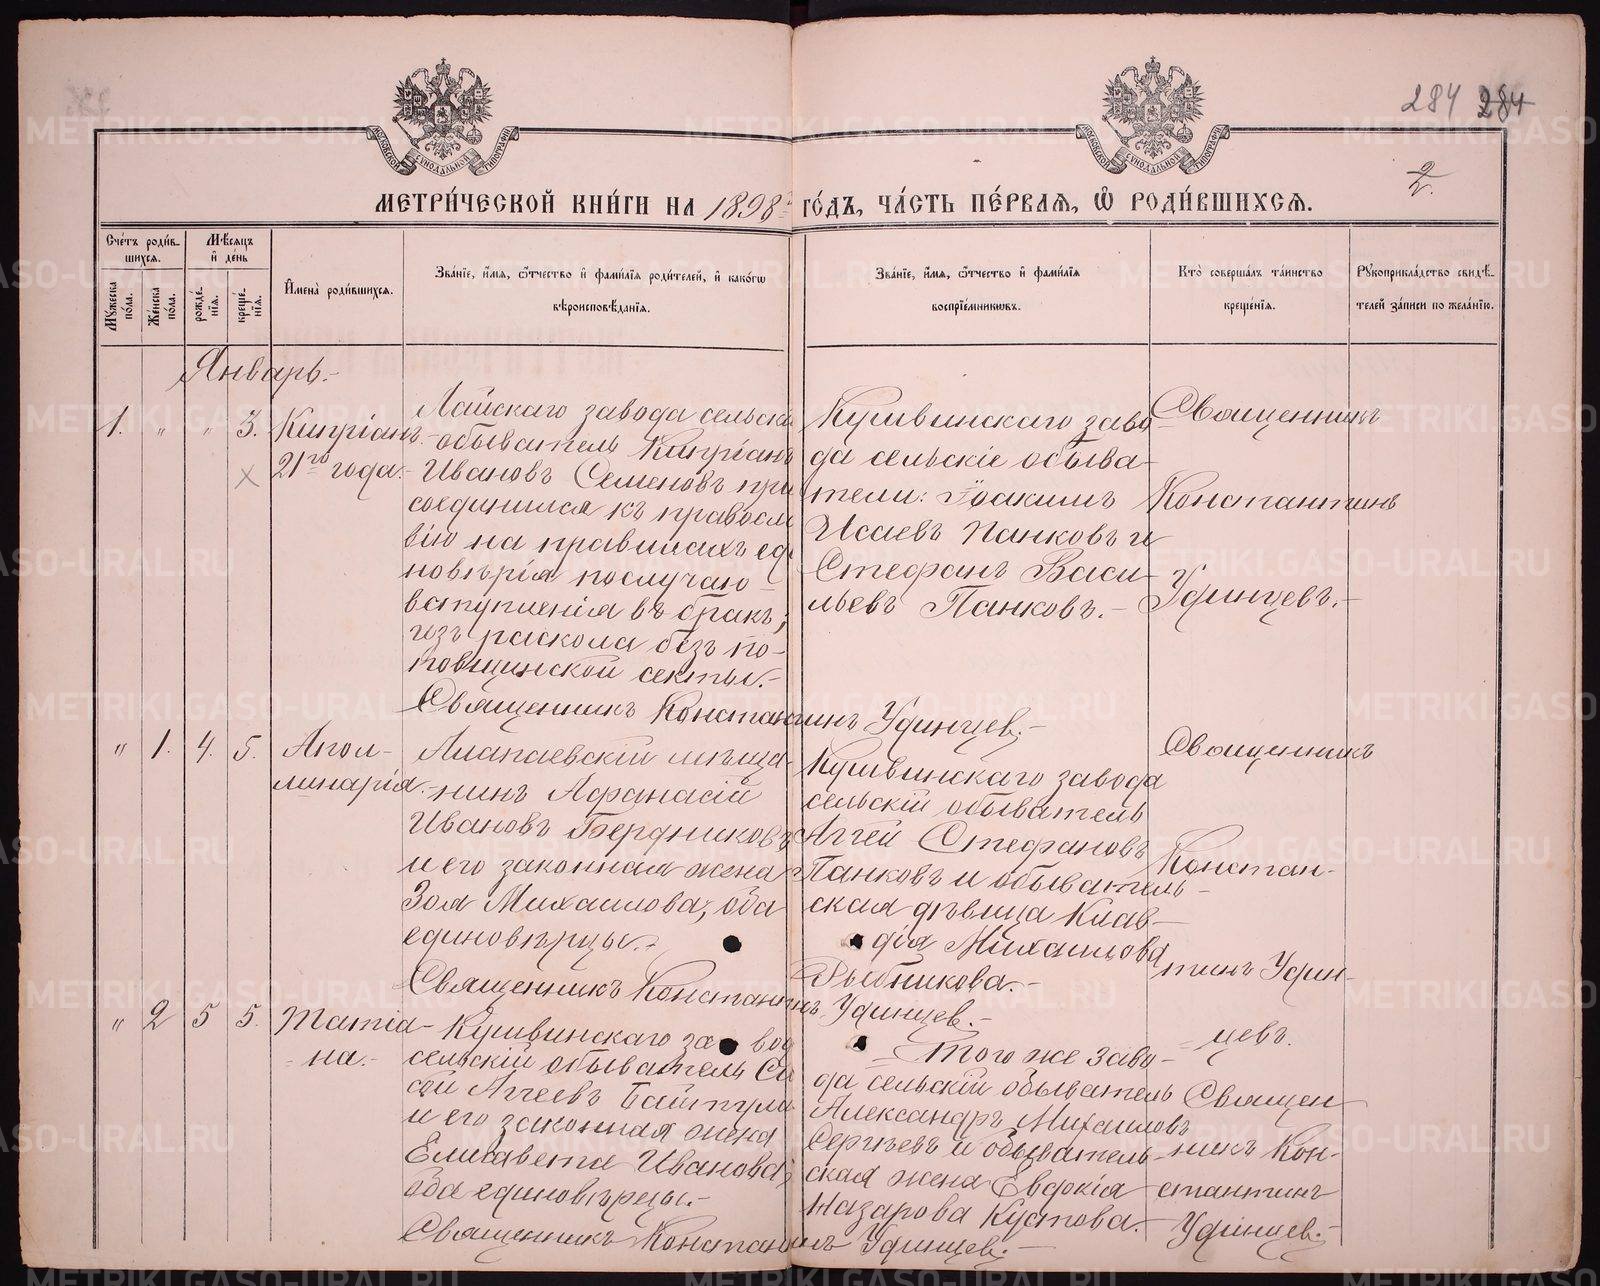 284 284
2.
МЕТРИ́ЧЕСКОЙ КНИ́ГИ НА 1898 ГО́ДЪ, ЧА́СТЬ ПЕ́РВАЯ, Ѡ҆ РОДИ́ВШИХСЯ.
Сче́тъ роди́в-
шихся.
Мꙋ́жеска по́ла.
Же́нска по́ла.
Мѣ́сяцъ и҆ де́нь
рожде́-
нїя.
креще́-
нїя.
И҆мена̀ роди́вшихся.
Зва́нїе, и҆́мя, ѻ҆́тчество и҆ фами́лїя роди́телей, и҆ како́гѡ
вѣроисповѣ́данїя.
Зва́нїе, и҆́мя, ѻ҆́тчество и҆ фами́лїя
воспрїе́мникѡвъ.
Кто̀ соверша́лъ та́инство
креще́нїя.
Рꙋкоприкла́дство свидѣ́-
телей за́писи по жела́нїю.
Январь.-
1. " " 3. Кипріанъ.
21го года.-
Лайскаго завода сельскі
обыватель Кипріанъ
Ивановъ Семеновъ при
соединился къ правосла
вію на правилахъ еди
новѣрія по случаю
вступленія въ бракъ,
изъ раскола без по-
повщинской секты.-
Кушвинскаго заво
да сельскіе обыва-
тели: Іоакимъ
Исаевъ Панковъ и
Стефанъ Васи-
льевъ Панковъ.-
Священникъ
Константинъ
Удинцевъ.-
Священникъ Константинъ Удинцев.-
" 1. 4. 5. Апол-
линарія.
Алапаевскій мѣща-
нинъ Афанасій
Ивановъ Бердниковъ
и его законная жена
Зоя Михаилова, оба
единовѣрцы.-
Кушвинскаго завода
сельскій обыватель
Аггей Стефановъ
Панковъ и обыватель-
ская дѣвица Клав-
дія Михаилова
Рыбникова.-
Священникъ
Констан-
тинъ Удин-
цевъ.
Священникъ Константинъ Удинцев.-
" 2 5 5. Татіа-
на.-
Кушвинскаго завод
сельскій обыватель Са
Аггеевъ
и его законная жена
Елисавета Иванова,
оба единовѣрцы.-
Того же заво-
да сельскій обыватель
Александръ Михаиловъ
Сергѣевъ и обыватель-
ская жена Евдокія
Назарова Кустова.-
Священ
никъ Кон-
стантинъ
Удинцев.-
Священникъ Константинъ Удинцев.-